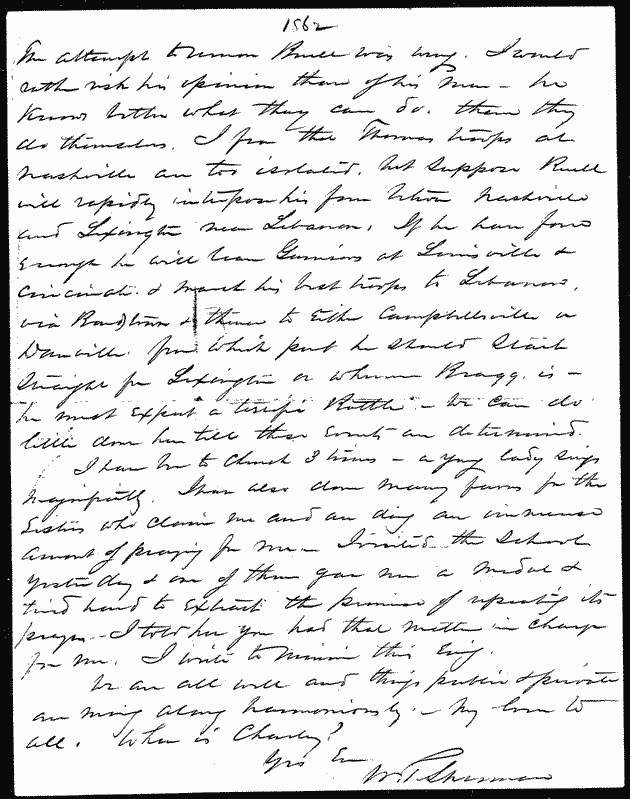 1862
The attempt to remove Buell was wrong. I would
rather risk his opinion than of his men - he
Knows better what they can do. than they
do themselves. I fear that Thomas troops at
Nashville are too isolated, but suppose Buell
will rapidly interpose his force between Nashville
and Lexington near Lebanon. If he have force
Enough he will leave Garrisons at Louisville &
Cincinati. & march his best troops to Lebanon,
via Bardstown & thence to Either Campbellsville or
Danville. from which point he should Start
Straight for Lexington or wherever Bragg is -
he must Expect a terific Battle - We can do
little down here till those Events are determined.
I have been to Church 3 times - a young lady sings
magnificently. I have also done many favors for the
Sisters who claim me and are doing an immense
amount of praying for me - I visited the School
yesterday & one of them gave me a medal &
tried hard to Extract the promise of repeating its
prayer - I told her you had that matter in charge
for me. I write to Minnie this Evg.
We are all well and things public & private
are moving along harmoniously - My love to
all. Where is Charley?
Yrs Ever
W. T. Sherman